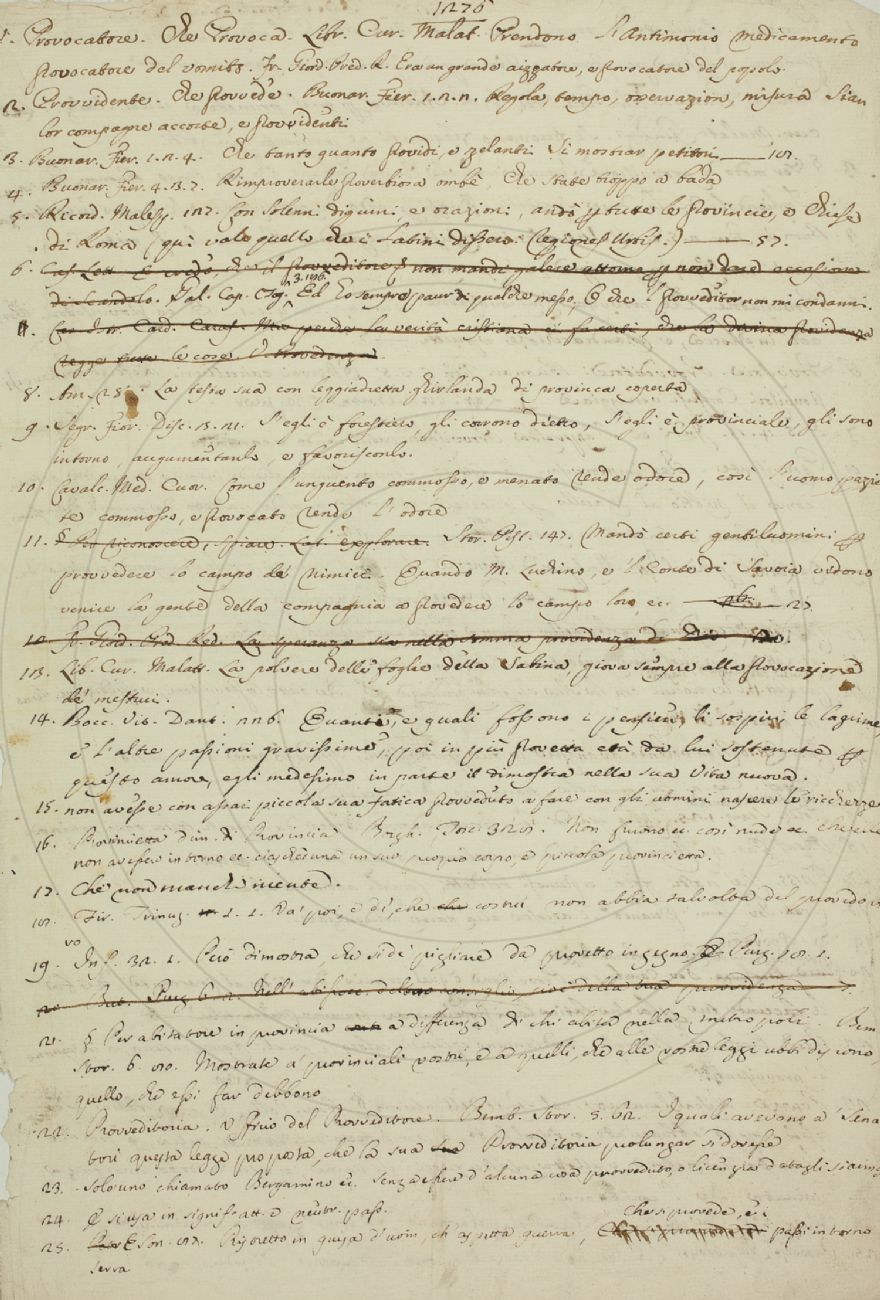 1276
1. Provocatore. Che Provoca. Libr. Cur. Malat. Prendono l'antimonio medicamento
provocatore del vomito. Fr. Giord. Pred. R. Era un grande aizzatore, e provocatore del popolo.
2. Provvidente. Che provvede. Buonar. Fier. 1. 2. 2. Regola, tempo, operazion, misura sian
lor compagne accorte, e provvidenti
3. Buonar. Fier. 1. 2. 4. Che tanto quanto providi, e zelanti si mostrar petitori
4. Buonar. Fier. 4. 3. 7. Rimproverarle proverbiosa oimbè, che state troppo a bada
5. Ricord. Malesp. 127. Con solenni digiuni, e orazioni, andò per tutte le provincie, e Chiese
di Roma (qui vale quello che i Latini dissero: Regiones Urbis.) 57.
6. Cas. Lett. E credo che il provveditore non mandi galere attorno per non dare occasione
di scandolo. Gal. Cap. Tog. 3. 176. Ed Eo sempre paur di qualche messo, O che 'l provveditor non mi condanni.
Cas. Card. Caraf. Ma perchè la verità cristiana ci fa certi, che la divina provvidenza
regge tutte le cose. V. Provedenza.
8. Am. 28. La testa sua con leggiadretta ghirlanda di provinca coperta
9. Segr. Fior. Disc. 3. 21. S'egli è forestiero, gli corrono dietro, s'egli è provinciale, gli sono
intorno, augumentanlo, e favorisconlo.
10. Cavalc. Med. Cuor. Come l'unguento commosso, e menato rende odore, così l'uomo pazien
te commosso, e provocato rende l'odore
11. § Per riconoscere, spiare. Lat. explorare. Stor. Pist. 147. Mandò certi gentiluomini per
provvedere lo campo de' nimici. Quando M. Luchino, e 'l Conte di Savoia vidono
venire la gente della compagnia a provedere lo campo loro, ec. 27.
12. Fr. Giord. Pred. Red. La speranza sia nella somma providenza di Dio
13. Lib. Cur. Malatt. La polvere delle foglie della Sabina, giova sempre alla provocazione
de' mestrui.
14. Bocc. Vit. Dant. 226. Quanti, e quali fossono i pensieri, li sospiri le lagrime,
e l'altre passioni gravissime, poi in più provetta età da lui sostenute per
questo amore, egli medesimo in parte il dimostra nella sua Vita nuova.
15. non avesse con assai piccola sua fatica provveduto a fare con gli uomini nascere le ricchezze
16. Provincietta dim. di Provincia Borgh. Tosc. Non furono ec. così nude ec. che
non avesser intorno ec. ciascheduna un suo proprio corpo, e piccola provincietta.
17. Che non manchi niente.
18. Fir. Trinuz. 1. 1. Va' poi, e dì, che costui non abbia talvolta del provido
19. Inf. 32. 1. Però dimostra, che si dè pigliare da provetto ingegno. Purg. 1.
20. But. Purg. 6. 2. Nell'abisso del tuo consiglio, cioè della tua provvidenza
21. § Per abitatore in provincia a differenza di chi abita nella metropoli. Bem.
Stor. 6. Mostrate a' provinciali vostri, e a quelli, che alle vostre leggi ubbidiscono,
quello, che essi far debbono
22. Provveditoria. Uffizio del Provveditore. Bemb. Stor. 5. I quali avevano a' Sena
tori questa legge proposta, che la sua Provveditoria prolungar si dovesse
23. Solo uno chiamato Bergamino ec. senza essere d'alcuna cosa provveduto, o licenzia datagli
24. E si usa in signif. att. e neutr. pass.
25. Son. Ristretto in guisa d'uom, ch'aspetta guerra, che si provede, e i passi intorno
serra